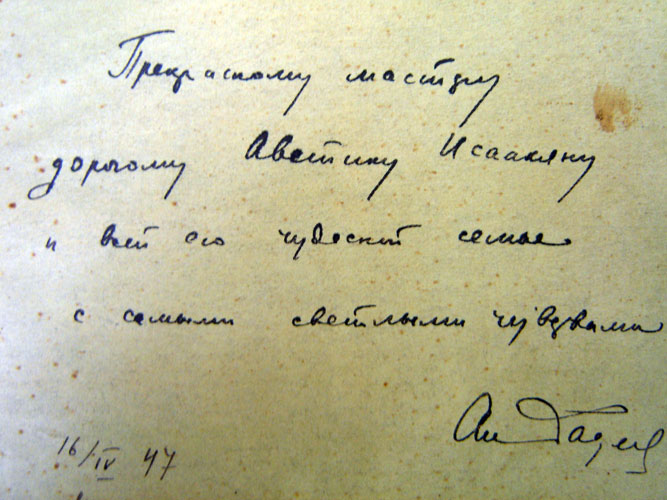 Прекрасному мастеру
дорогому Аветику Исаакяну
и всей его чудесной семье
с самыми светлыми чувствами
16/IV 47